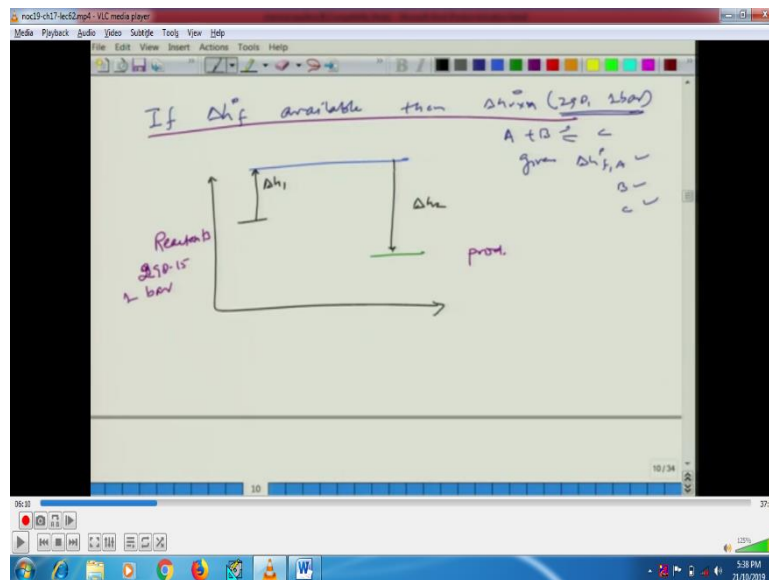 noc19-ch17-lec62.mp4 - VLC media player
Media Playback Audio Video Subtitle Tools View Help
File Edit View Insert Actions Tools Help
If Δh°f available then Δh°rxn (298, 1bar)
A + B ⇌ C
given Δh°f,A ✓
B ✓
C ✓
Δh₁
Δh₂
Reactants
298.15
1 bar
prod.
10/34
10
06:10
37:
125%
5:38 PM
21/10/2019